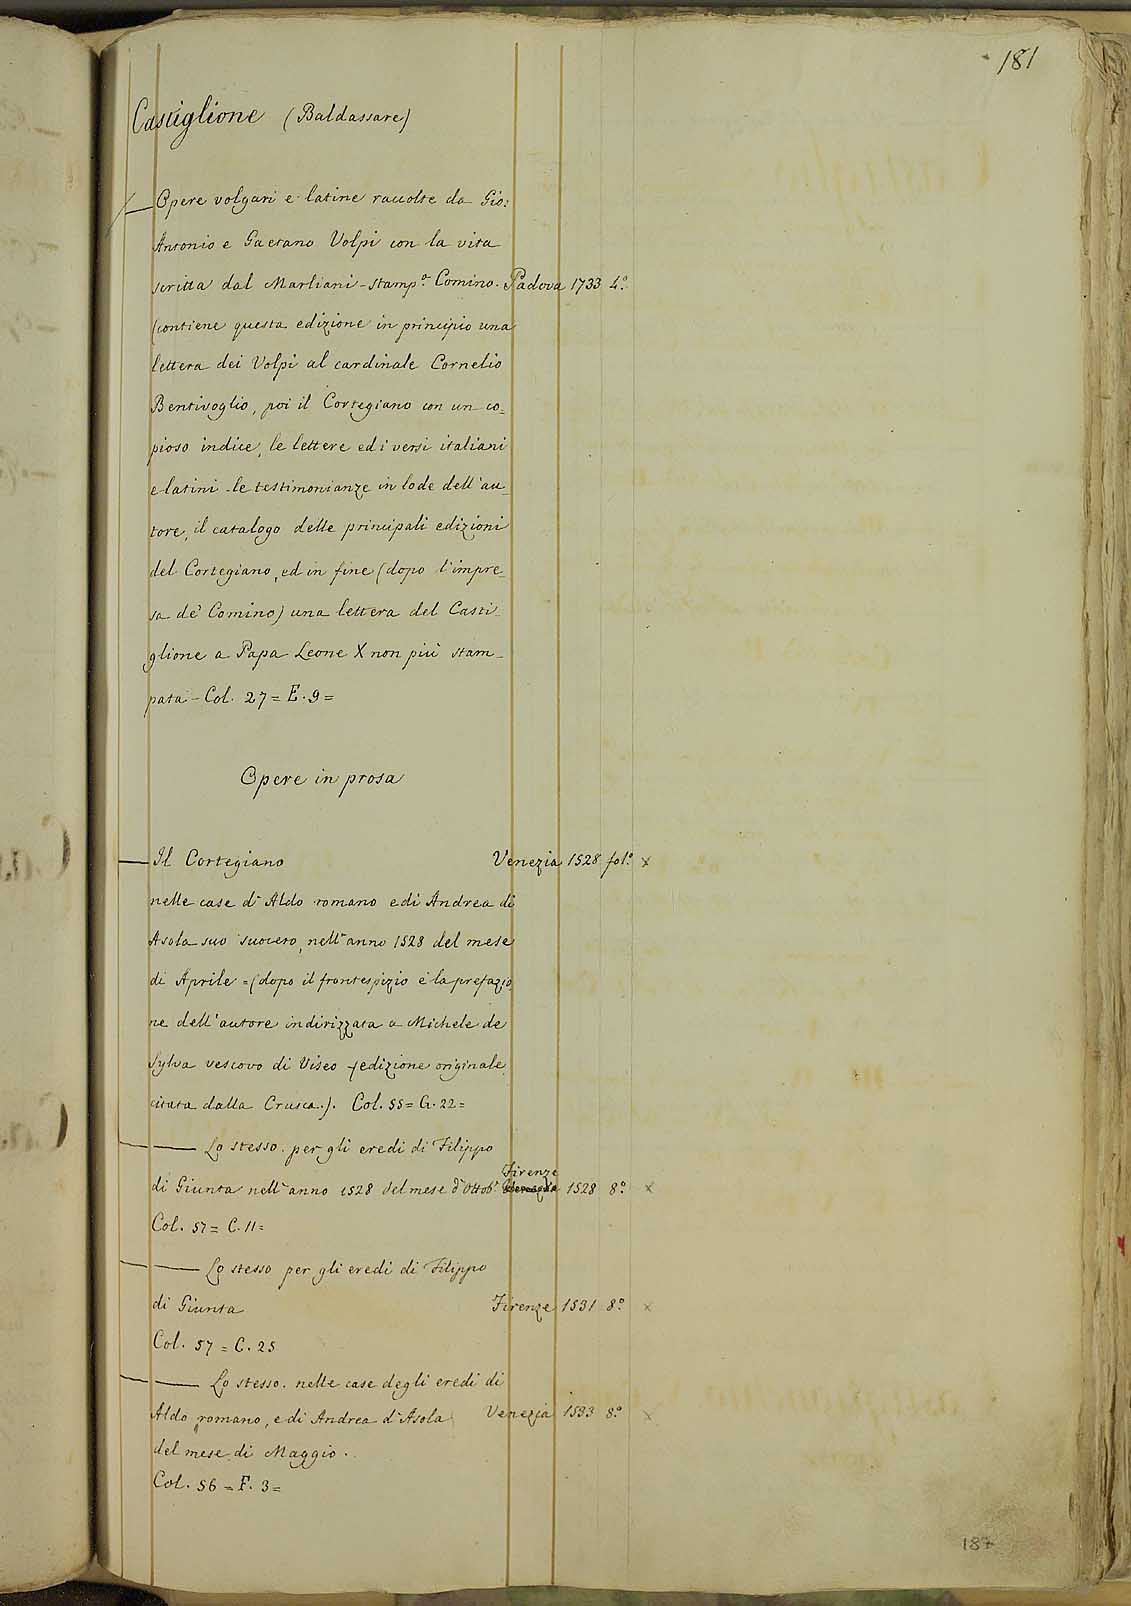 181
Castiglione (Baldassare)
Opere volgari e latine raccolte da Gio:
Antonio e Gaetano Volpi con la vita
scritta dal Marliani - stamp.ª Comino. Padova 1733 4.º
(contiene questa edizione in principio una
lettera dei Volpi al cardinale Cornelio
Bentivoglio, poi il Cortegiano con un co_
pioso indice, le lettere ed i versi italiani
e latini - le testimonianze in lode dell'au_
tore, il catalogo delle principali edizioni
del Cortegiano, ed in fine (dopo l'impre_
sa de' Comino) una lettera del Casti_
glione a Papa Leone X non più stam_
pata - Col. 27 = E. 9 =
Opere in prosa
Il Cortegiano Venezia 1528 fol.º x
nelle case d'Aldo romano e di Andrea di
Asola suo suocero, nell'anno 1528 del mese
di Aprile = (dopo il frontespizio è la prefazio_
ne dell'autore indirizzata a Michele de
Sylva vescovo di Viseo - edizione originale
citata dalla Crusca.). Col. 55 = G. 22 =
Lo stesso. per gli eredi di Filippo
Firenze
di Giunta nell'anno 1528 del mese d'Ottob.e Venezia 1528 8.º x
Col. 57 = C. 11 =
Lo stesso per gli eredi di Filippo
di Giunta Firenze 1531 8.º x
Col. 57 = C. 25
Lo stesso. nelle case degli eredi di
Aldo romano, e di Andrea d'Asola Venezia 1533 8.º x
del mese di Maggio.
Col. 56 = F. 3 =
187